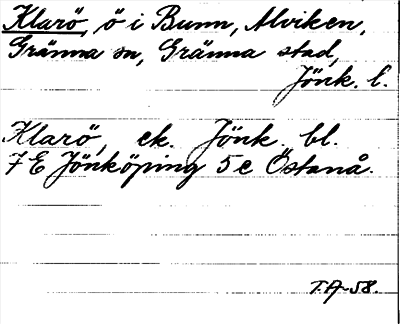 Klarö, ö i Bunn, Alviken,
Gränna sn, Gränna stad,
Jönk. l.
Klarö, ek. Jönk. bl.
7 E Jönköping 5 e Östanå.
T.A-58.